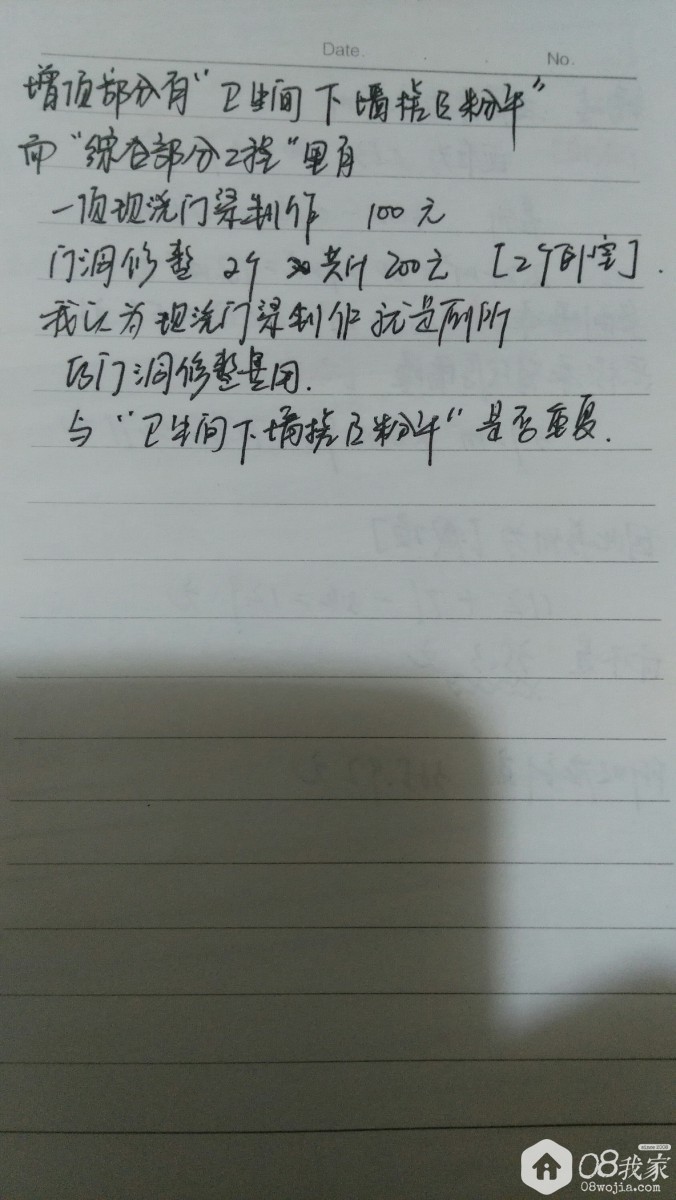 Date.
No.
增项部分有"卫生间下墙搓及粉平"
而"综合部分工程"里有
一项现浇门梁制作 100元
门洞修整 2个 共计200元 [2个卧室].
我认为现浇门梁制作就是厕所
的门洞修整费用.
与"卫生间下墙搓及粉平"是否重复.
08我家
08wojia.com